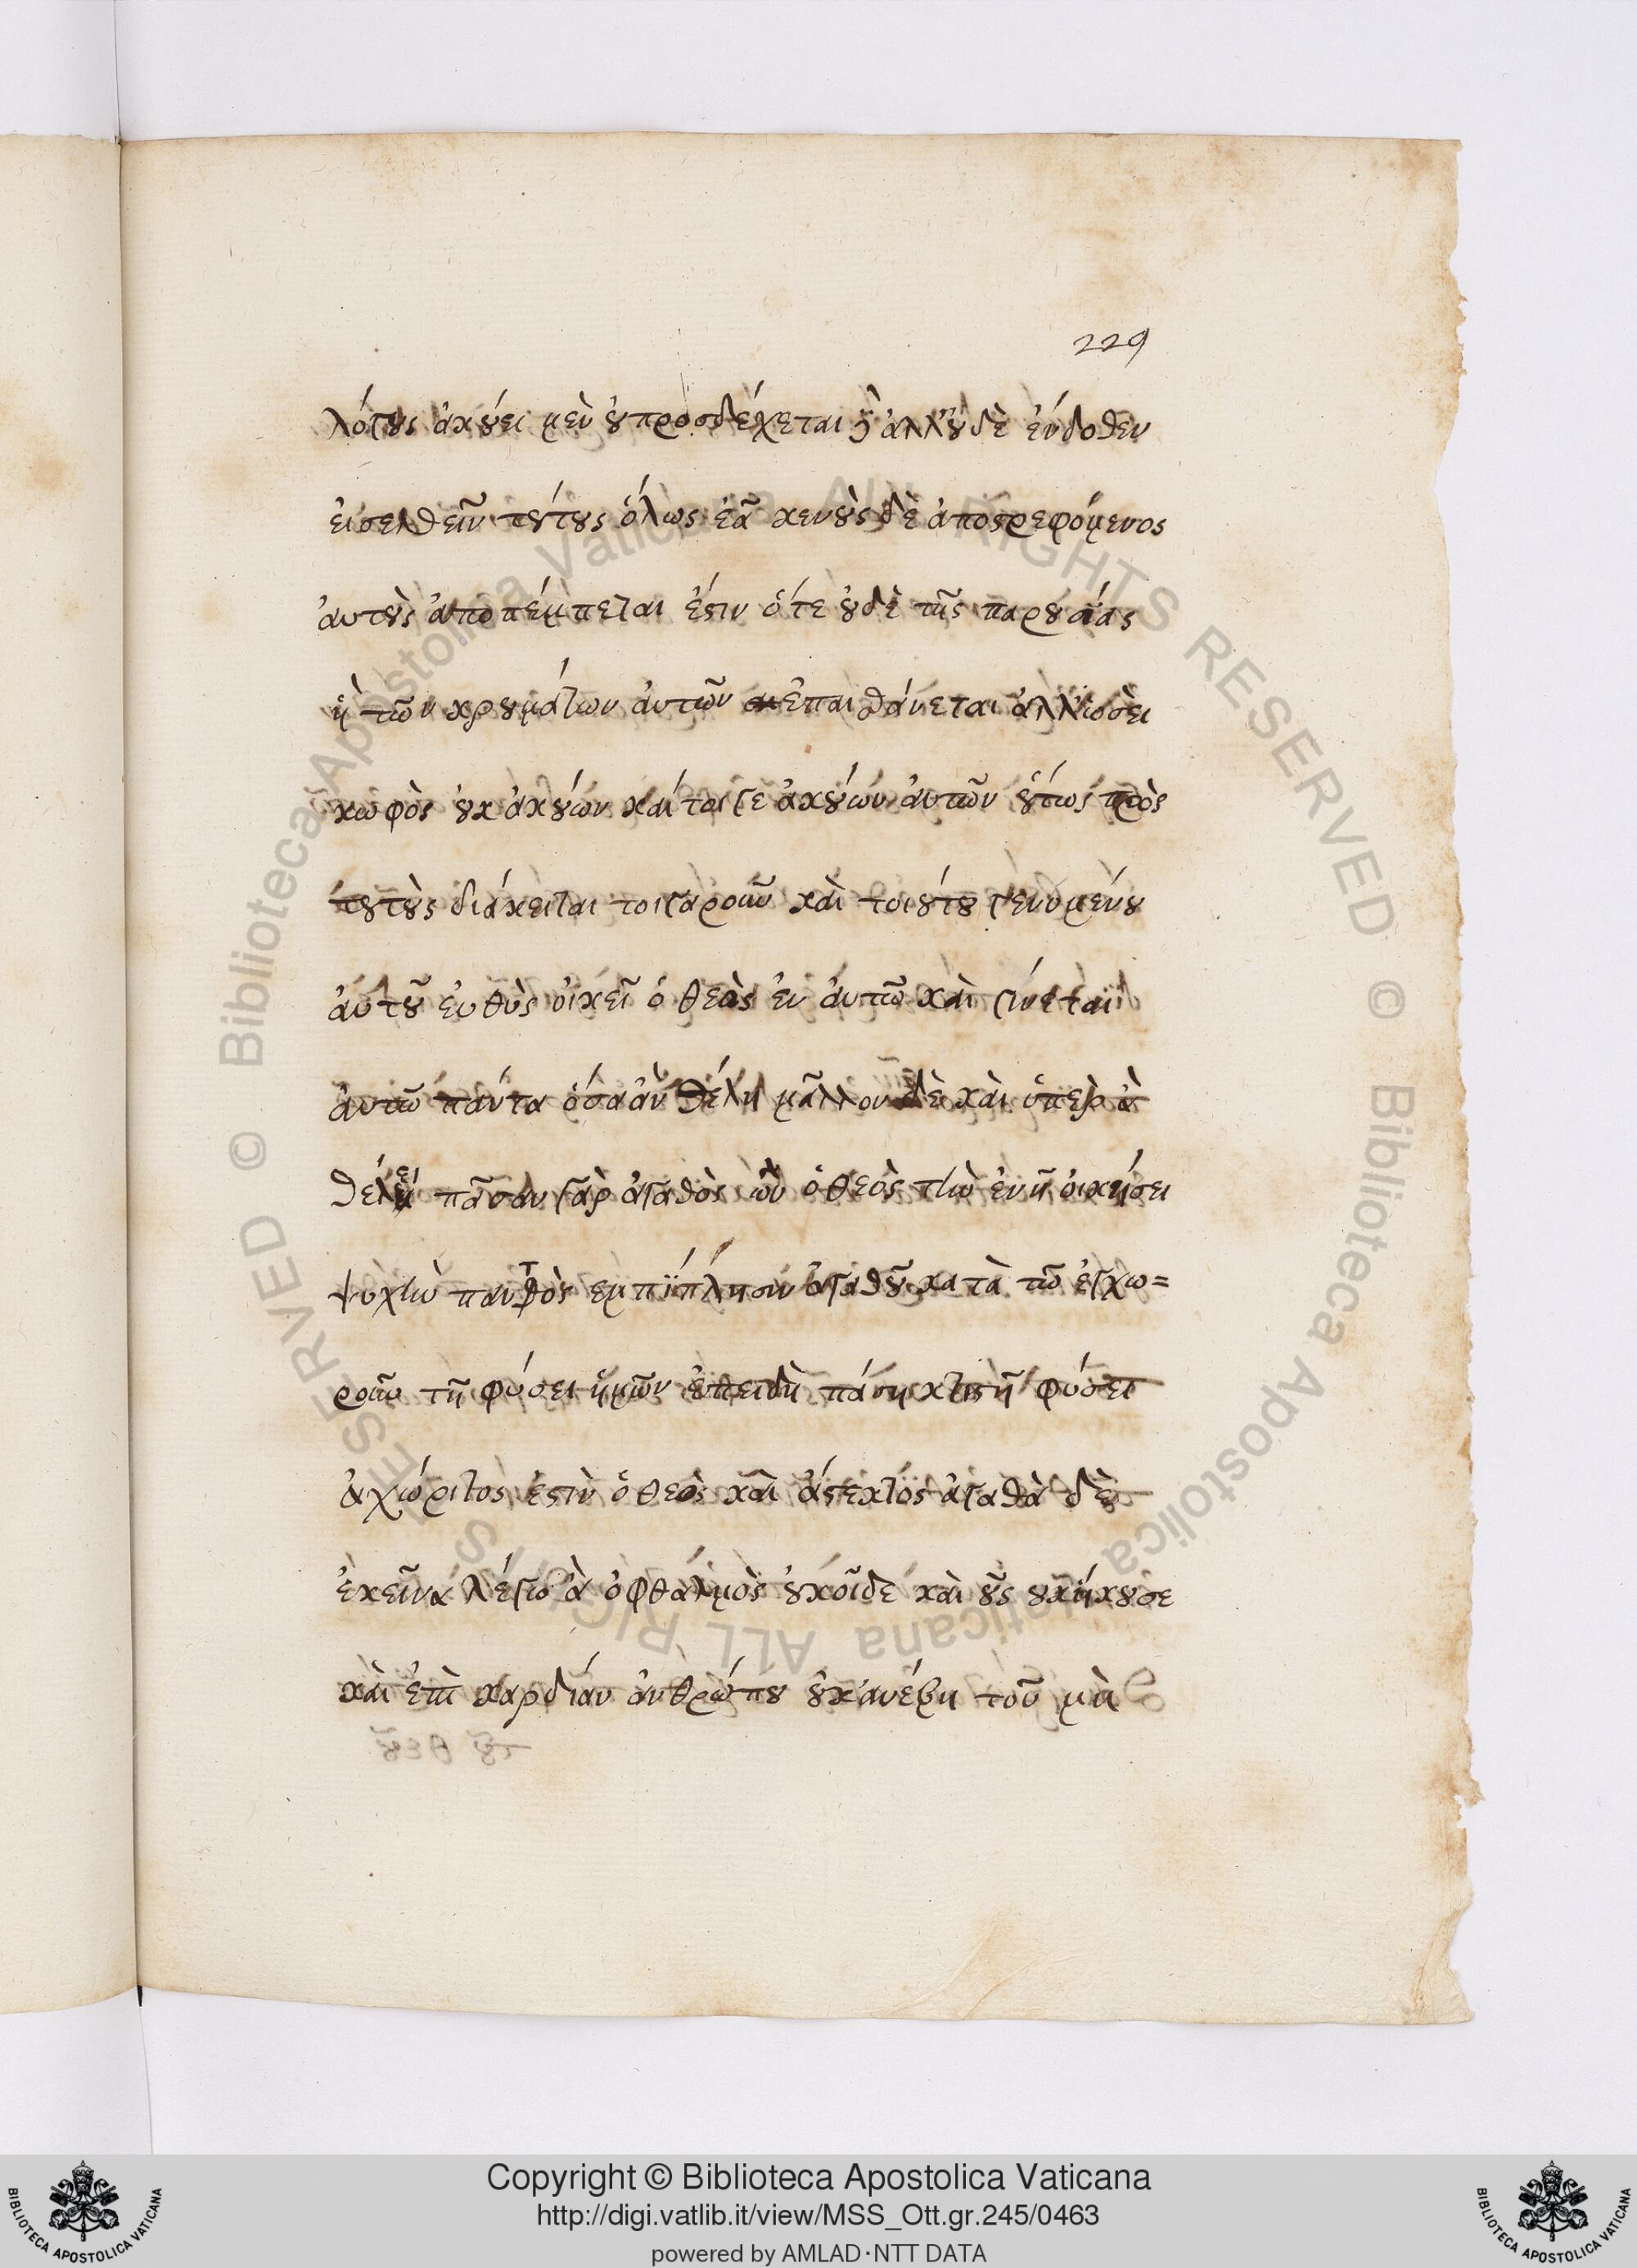 229
λόγους ἀκούει μὲν οὐ προσδέχεται δὲ ἀλλ' οὐδὲ ἔνδοθεν
εἰσελθεῖν τούτους ὅλως ἐᾶ κενοὺς δὲ ἀποστρεφόμενος
αὐτοὺς ἀποπέμπεται ἔστιν ὅτε οὐδὲ τῆς παρουσίας
ἢ τῶν κρουμάτων αὐτῶν ἐπαισθάνεται ἀλλ' ὡσεὶ
κωφὸς οὐκ ἀκούων καίτοιγε ἀκούων αὐτῶν οὕτως πρὸς
τούτους διάκειται τοιγαροῦν καὶ τοιούτου γενομένου
αὐτοῦ εὐθὺς οἰκεῖ ὁ θεὸς ἐν αὐτῷ καὶ γίνεται
αὐτῷ πάντα ὅσα ἂν θέλῃ μᾶλλον δὲ καὶ ὑπὲρ ἃ
θέλει πᾶσαν γὰρ ἀγαθὸς ὢν ὁ θεὸς τὴν ἐν ᾗ οἰκήσει
ψυχὴν παντὸς ἐμπίπλησιν ἀγαθοῦ κατὰ τὸ ἐγχω=
ροῦν τῇ φύσει ἡμῶν ἐπειδὴ πάσῃ κτιστῇ φύσει
ἀχώριτος ἐστὶν ὁ θεὸς καὶ ἄστεκτος ἀγαθὰ δὲ
ἐκεῖνα λέγω ἃ ὀφθαλμὸς οὐκ οἶδε καὶ οὖς οὐκ ἤκουσε
καὶ ἐπὶ καρδίαν ἀνθρώπου οὐκ ἀνέβη τοῦ μὴ
Copyright © Biblioteca Apostolica Vaticana
http://digi.vatlib.it/view/MSS_Ott.gr.245/0463
powered by AMLAD·NTT DATA
BIBLIOTECA APOSTOLICA VATICANA
BIBLIOTECA APOSTOLICA VATICANA
© Biblioteca Apostolica Vaticana ALL RIGHTS RESERVED © Biblioteca Apostolica Vaticana ALL RIGHTS RESERVED